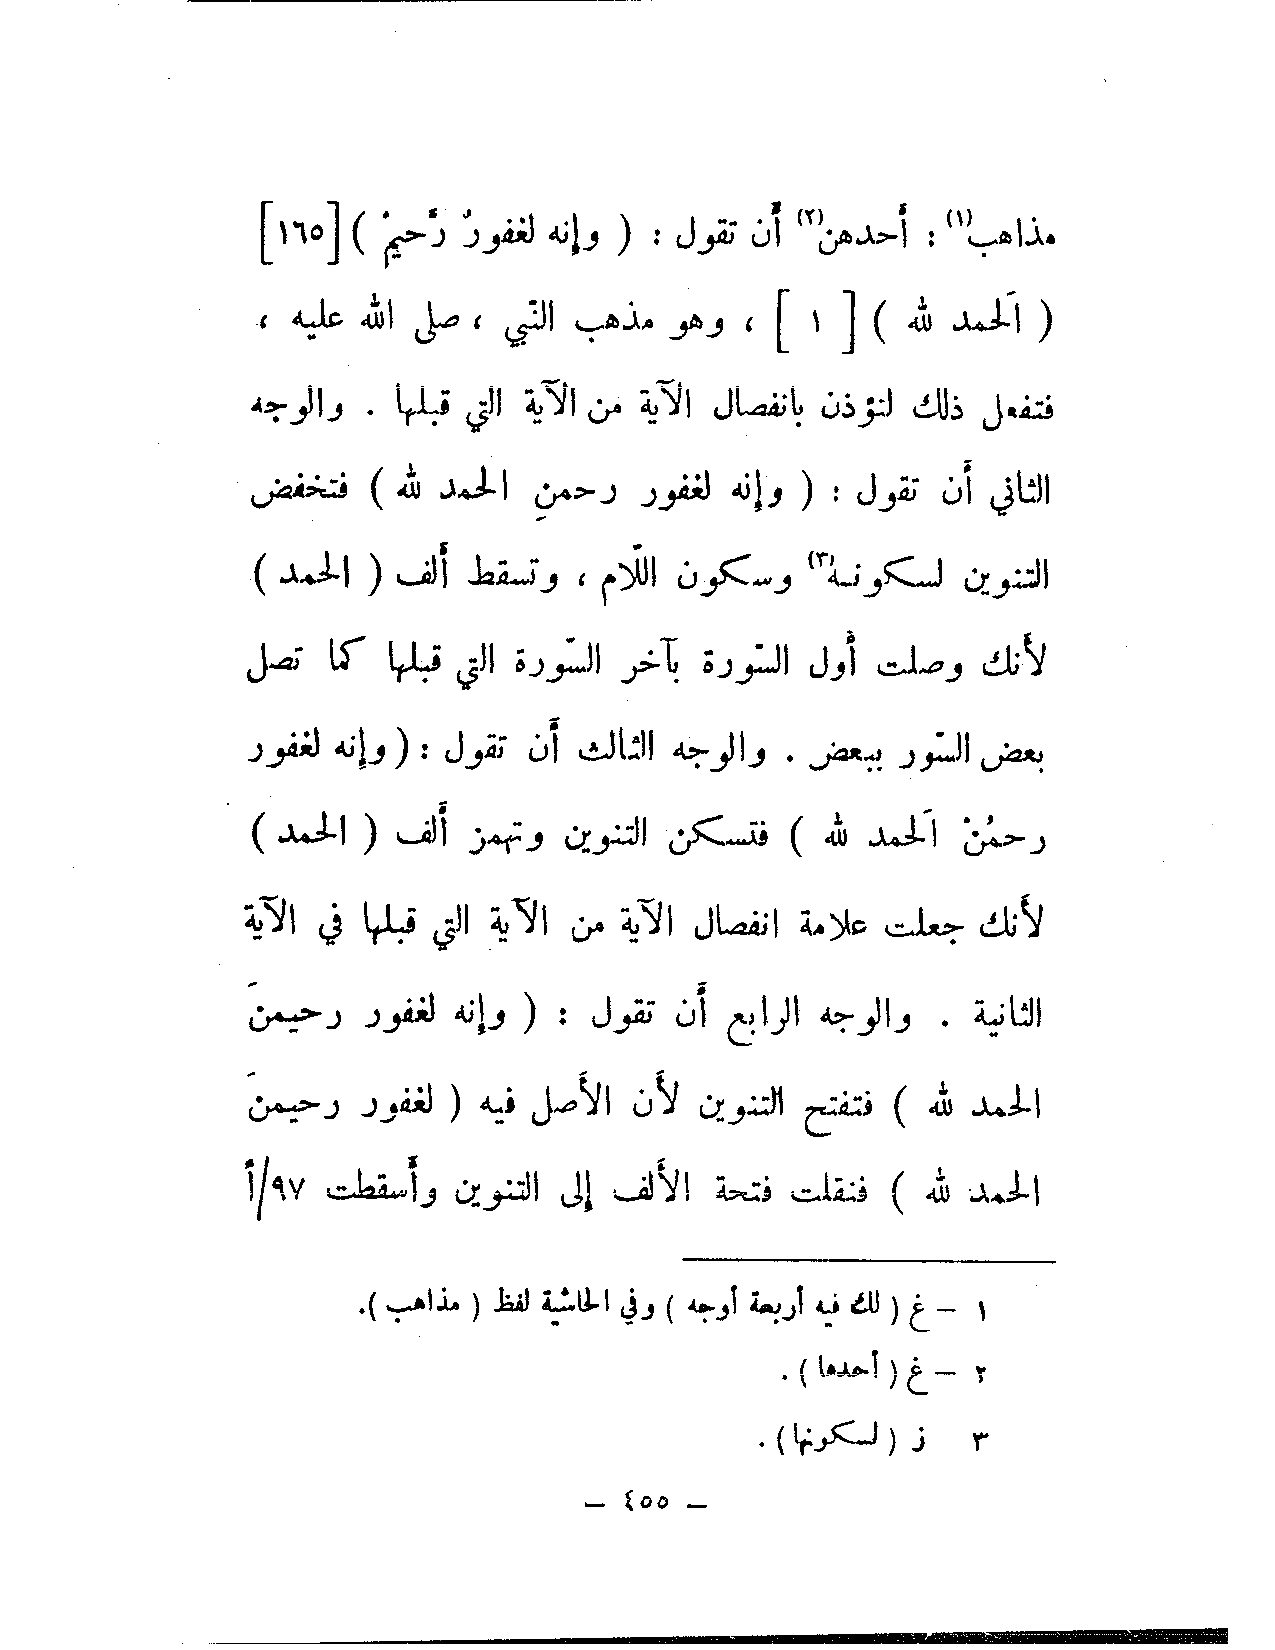 مذاهب(١) : أحدهن(٢) أن تقول : ( وإنه لغفورٌ رَّحيمْ ) [١٦٥]
( اَلحمد لله ) [ ١ ] ، وهو مذهب النّبي ، صلى الله عليه ،
فتفعل ذلك لنؤذن بانفصال الآية من الآية التي قبلها . والوجه
الثاني أن تقول : ( وإنه لغفور رحمنِ الحمد لله ) فتخفض
التنوين لسكونه(٣) وسكون اللّام ، وتسقط ألف ( الحمد )
لأنك وصلت أول السّورة بآخر السّورة التي قبلها كما تصل
بعض السّور ببعض . والوجه الثالث أن تقول : ( وإنه لغفور
رحمُنْ اَلحمد لله ) فتسكن التنوين وتهمز ألف ( الحمد )
لأنك جعلت علامة انفصال الآية من الآية التي قبلها في الآية
الثانية . والوجه الرابع أن تقول : ( وإنه لغفور رحيمنَ
الحمد لله ) فتفتح التنوين لأن الأصل فيه ( لغفور رحيمنَ
الحمد لله ) فنقلت فتحة الألف إلى التنوين وأسقطت ٩٧/أ
١ – غ ( لك فيه أربعة أوجه ) وفي الحاشية لفظ ( مذاهب ).
٢ – غ ( أحدها ) .
٣ ز ( لسكونها ) .
– ٤٥٥ –